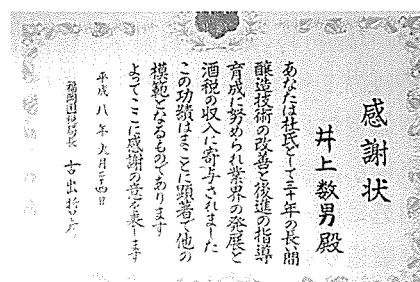 感謝状
井上数男殿
あなたは杜氏として三十年の長い間
醸造技術の改善と後進の指導
育成に努められ業界の発展と
酒税の収入に寄与されました
この功績はまことに顕著で他の
模範となるものであります
よってここに感謝の意を表します
平成八年九月二十四日
福岡国税局長